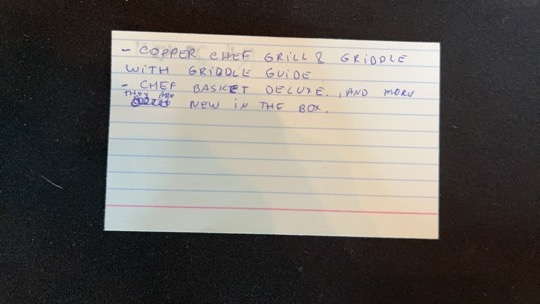 - COPPER CHEF GRILL & GRIDDLE
WITH GRIDDLE GUIDE
- CHEF BASKET DELUXE. , AND MORE
THEY ARE
NEW IN THE BOX.